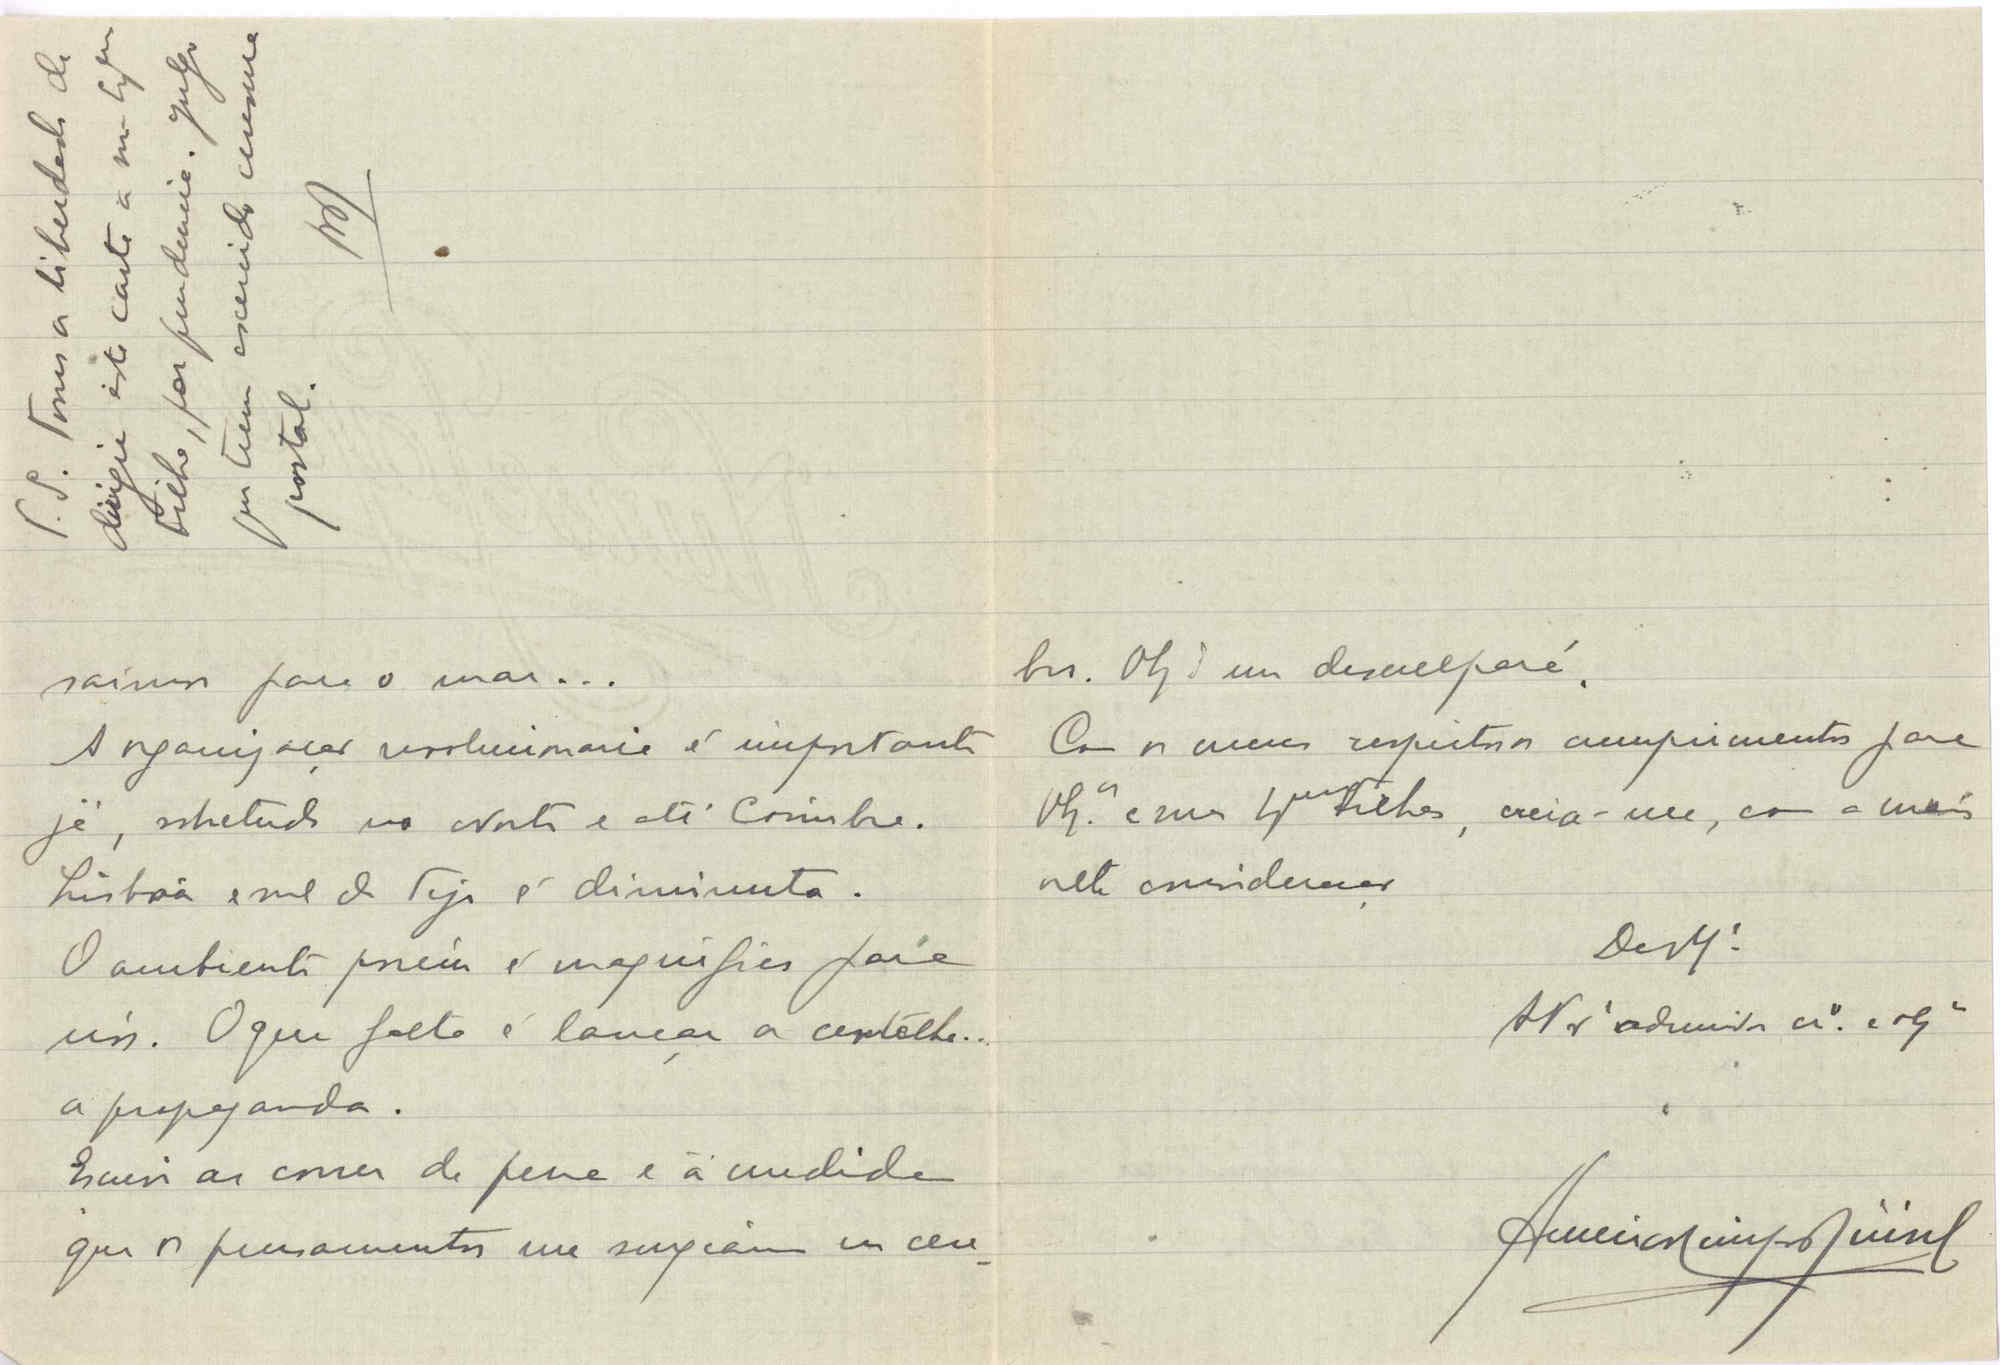 P.S. Tomo a liberdade de
dirigir esta carta a sua
filha, por prudencia. Julgo
que tem exercido censura
postal.
saimos para o mar...
A organização revolucionaria é importante
já, sobretudo no Norte e até Coimbra.
Lisboa e sul do Tejo é diminuta.
O ambiente porém é magnifico para
nós. O que falta é lançar a centelha...
a propaganda.
Escrevi ao correr da pena e á medida
que os pensamentos me surgiam no cere-
bro. V. Ex.ª me desculpará.
Com os meus respeitosos cumprimentos para
V. Ex.ª e sua Filha, creia-me, com a mais
alta consideração
De V. Ex.ª
At.º admirador cr.º e obg.º